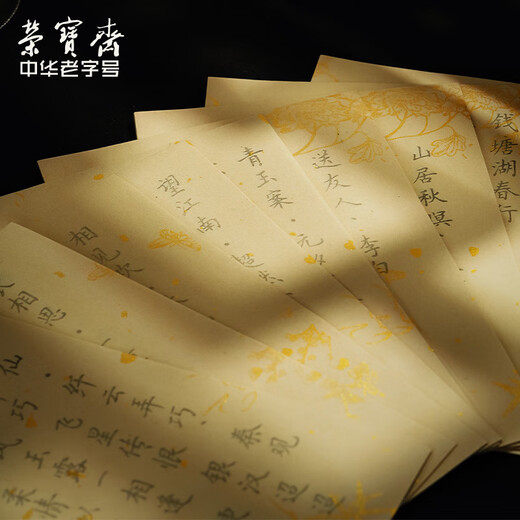 荣寶齋
中华老字号
钱塘湖春行
山居秋暝
送友人·李白
青玉案·元夕
望江南·超然
相见欢
相思
仙·纤云弄巧、秦观
巧 飞星传恨 银汉迢迢
风玉露一相逢
柔情似